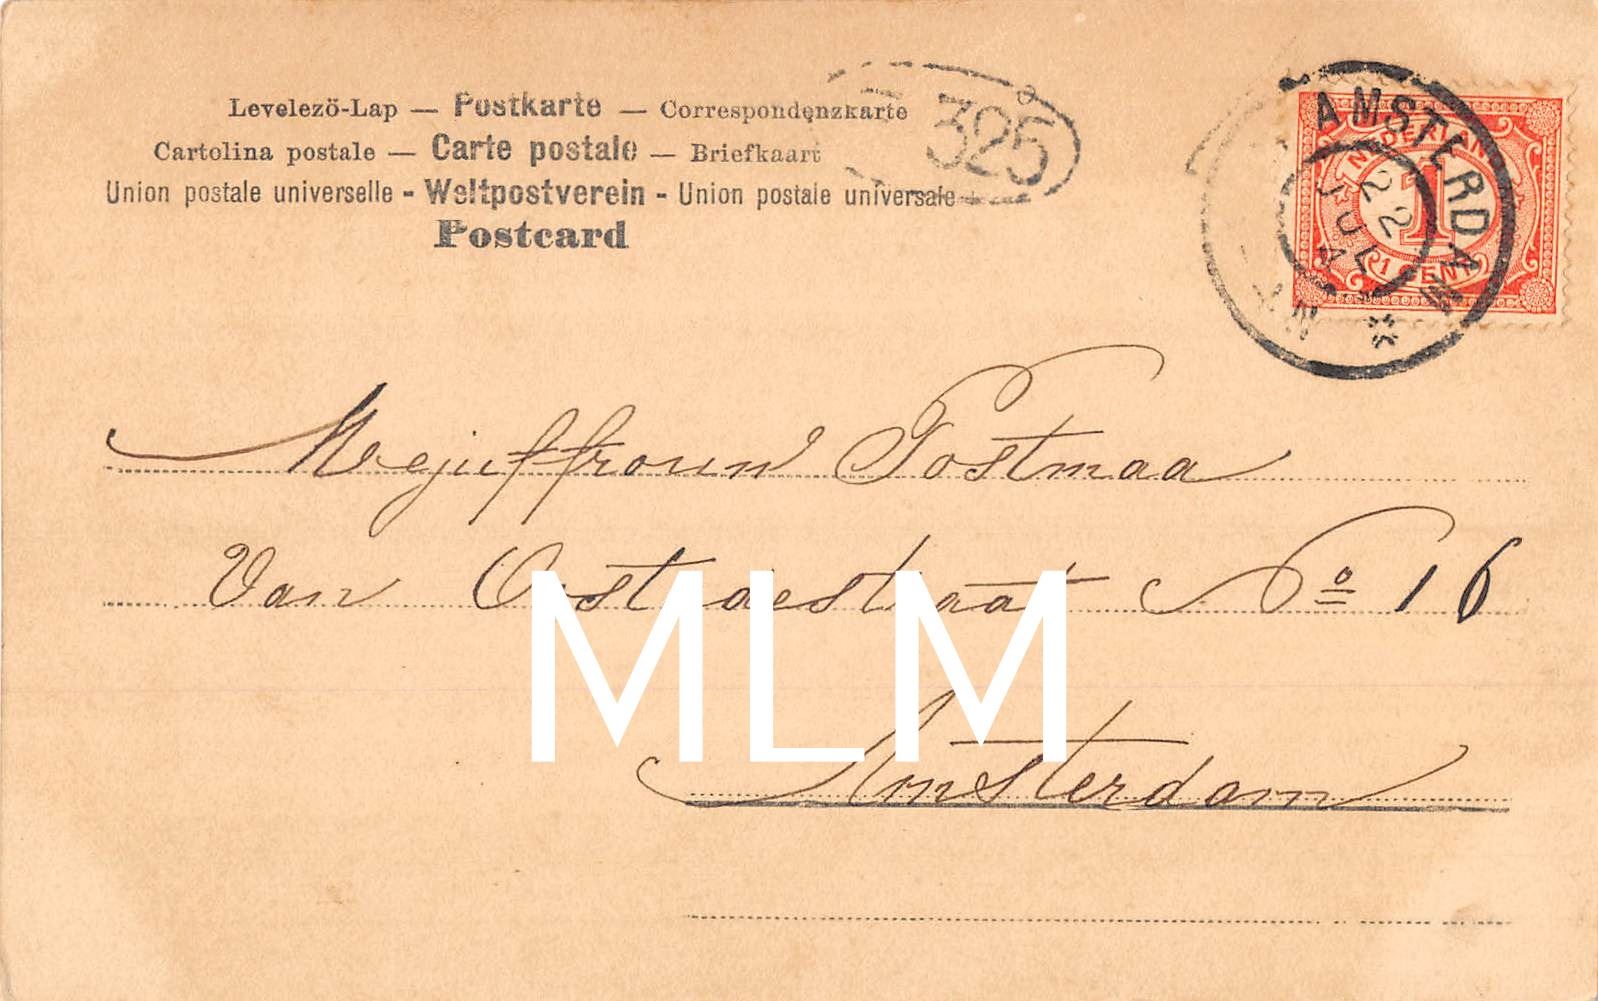 Levelezö-Lap — Postkarte — Correspondenzkarte
Cartolina postale — Carte postale — Briefkaart
Union postale universelle - Weltpostverein - Union postale universale
Postcard
325
AMSTERDAM
22 JUL
NEDERLAND
1
1 CENT
Mejuffrouw Postmaa
Van Ostadestraat No 16
Amsterdam
MLM